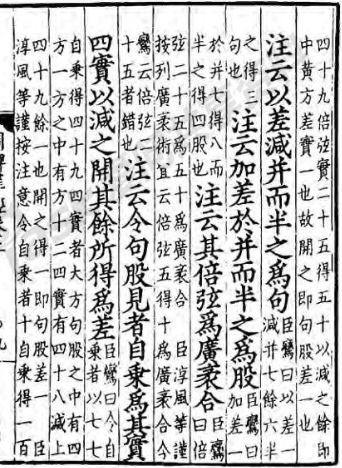 四十九倍弦實二十五得五十以減之餘即
中黃方差實一也故開之即句股差一也
注云以差減并而半之爲句
臣鸞曰以差一
減并七餘六半
之得三
句也
注云加差於并而半之爲股
臣鸞曰
加差一
於并七得八而
半之得四股也
注云其倍弦爲廣袤合
臣鸞
曰倍
弦二十五爲五十爲廣袤合 臣淳風等謹
按列廣袤術宜云倍弦五得十爲廣袤合今
鸞云倍弦二
十五者錯也
注云令句股見者自乘爲其實
四實以減之開其餘所得爲差
臣鸞曰令自
乘者以七七
自乘得四十九四實者大方句股之中有四
方一方之中有方十二四實有四十八減上
四十九餘一也開之得一即句股差一 臣
淳風等謹按注意令自乘者十自乘得一百